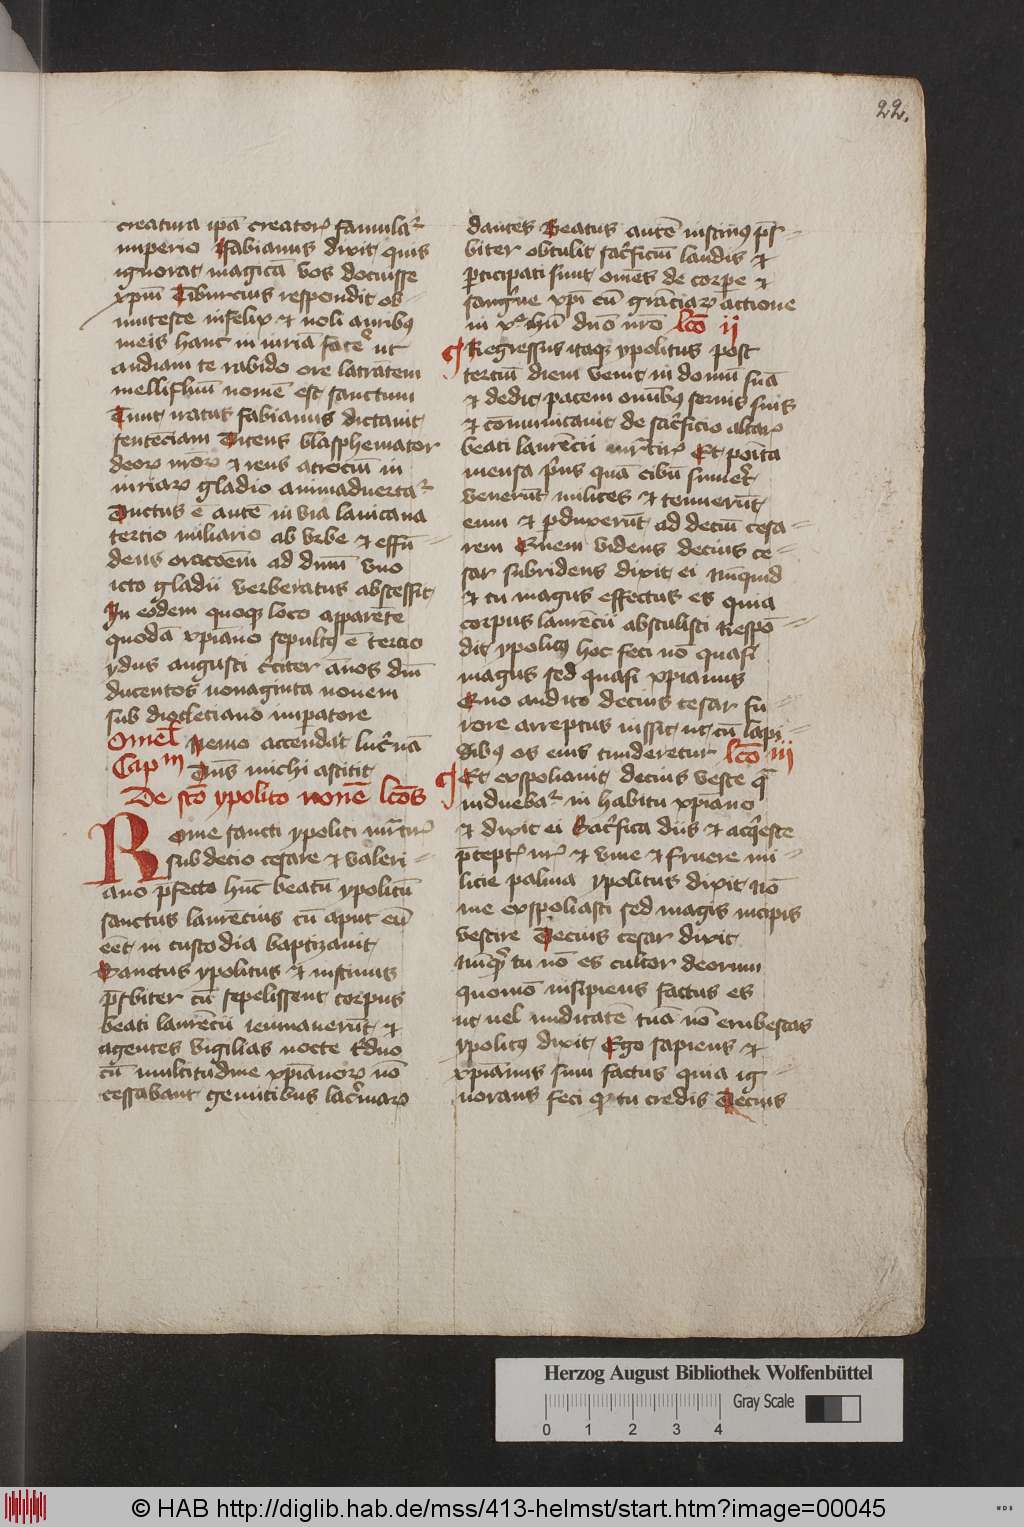 22.
creatura ipā creatorꝫ famulaꝛ
imperio Fabianus dixit quis
ignorat magicā vos docuisse
xpm̄ Tiburcius respondit ob-
mutesce infelix ⁊ noli auribꝰ
meis hanc iniuriā facẽ ut
audiam te rabido ore latrātem
mellifluū nomē est sanctum
Tunc iratus fabianus dictauit
sentēciam Dicens blasphemator
deorꝫ nr̄orꝫ ⁊ reus atrociū in
iuriarꝫ gladio animaduertaꝛ
Ductus ē autē in via lauicana
tercio miliario ab vrbe ⁊ effū-
dens oracōem ad dn̄m vno
icto gladii verberatus abscessit
In eodem quoqꝫ loco apparēte
quodā xpiano sepultꝰ ē tercio
ydus augusti circiter annos dn̄i
ducentos nonaginta nouem
sub diocleciano imperatore
Omel Nemo accendit lucernā
Capm Dn̄s michi astitit
De sco ypolito nonē lcōs
Rome sancti ypoliti mr̄tirꝫ
sub decio cesare ⁊ valeri-
ano p̄fecto hūc beatū ypolitū
sanctus laurēcius cū aput eū
eēt in custodia baptizauit
Sanctus ypolitus ⁊ iustinus
p̄sbiter cū sepelissent corpus
beati laurēcii ieiunauerūt ⁊
agentes vigilias nocte triduo
cū multitudine xpianorꝫ nō
cessabant gemitibus lacrimarꝫ
dantes Beatus autē iustinꝰ p̄s-
biter obtulit sacrificiū laudis ⁊
p̄ticipati sunt om̄es de corpe ⁊
sanguine xpi cū graciarꝫ actione
in xo ihū dn̄o nr̄o lcō ij
Regressus itaqꝫ ypolitus post
terciū diem venit in domū suā
⁊ dedit pacem omībꝰ seruis suis
⁊ cōmunicauit de sacrificio altarꝫ
beati laurēcii mr̄tirꝫ Et poita
mensa prius quā cibū sumeret
venerūt milites ⁊ tenuerūt
eum ⁊ p̄duxerūt ad deciū cesa-
rem Quem videns decius ce-
sar subridens dixit ei Nūquid
⁊ tu magus effectus es quia
corpus laurēcii abstulisti Respō-
dit ypolitꝰ hoc feci nō quasi
magus sed quasi xpianus
Quo audito decius cesar fu-
rore arreptus iussit ut cū lapi-
dibꝰ os eius tunderetur lcō iii
Et expoliauit decius veste qua
induebaꝛ in habitu xpiano
⁊ dixit ei Sacrifica diis ⁊ acqesce
p̄ceptꝫ nrꝫ ⁊ viue ⁊ fruere mi-
licie palma ypolitus dixit nō
me expoliasti sed magis incipis
vestire Decius cesar dixit
Nūqd tu nō es cultor deorum
quomō insipiens factus es
ut vel nuditatē tuā nō erubescas
ypolitꝰ dixit Ego sapiens ⁊
xpianus sum factus quia ig-
norans feci qꝫ tu credis Decius
Herzog August Bibliothek Wolfenbüttel
0 1 2 3 4
Gray Scale
© HAB http://diglib.hab.de/mss/413-helmst/start.htm?image=00045